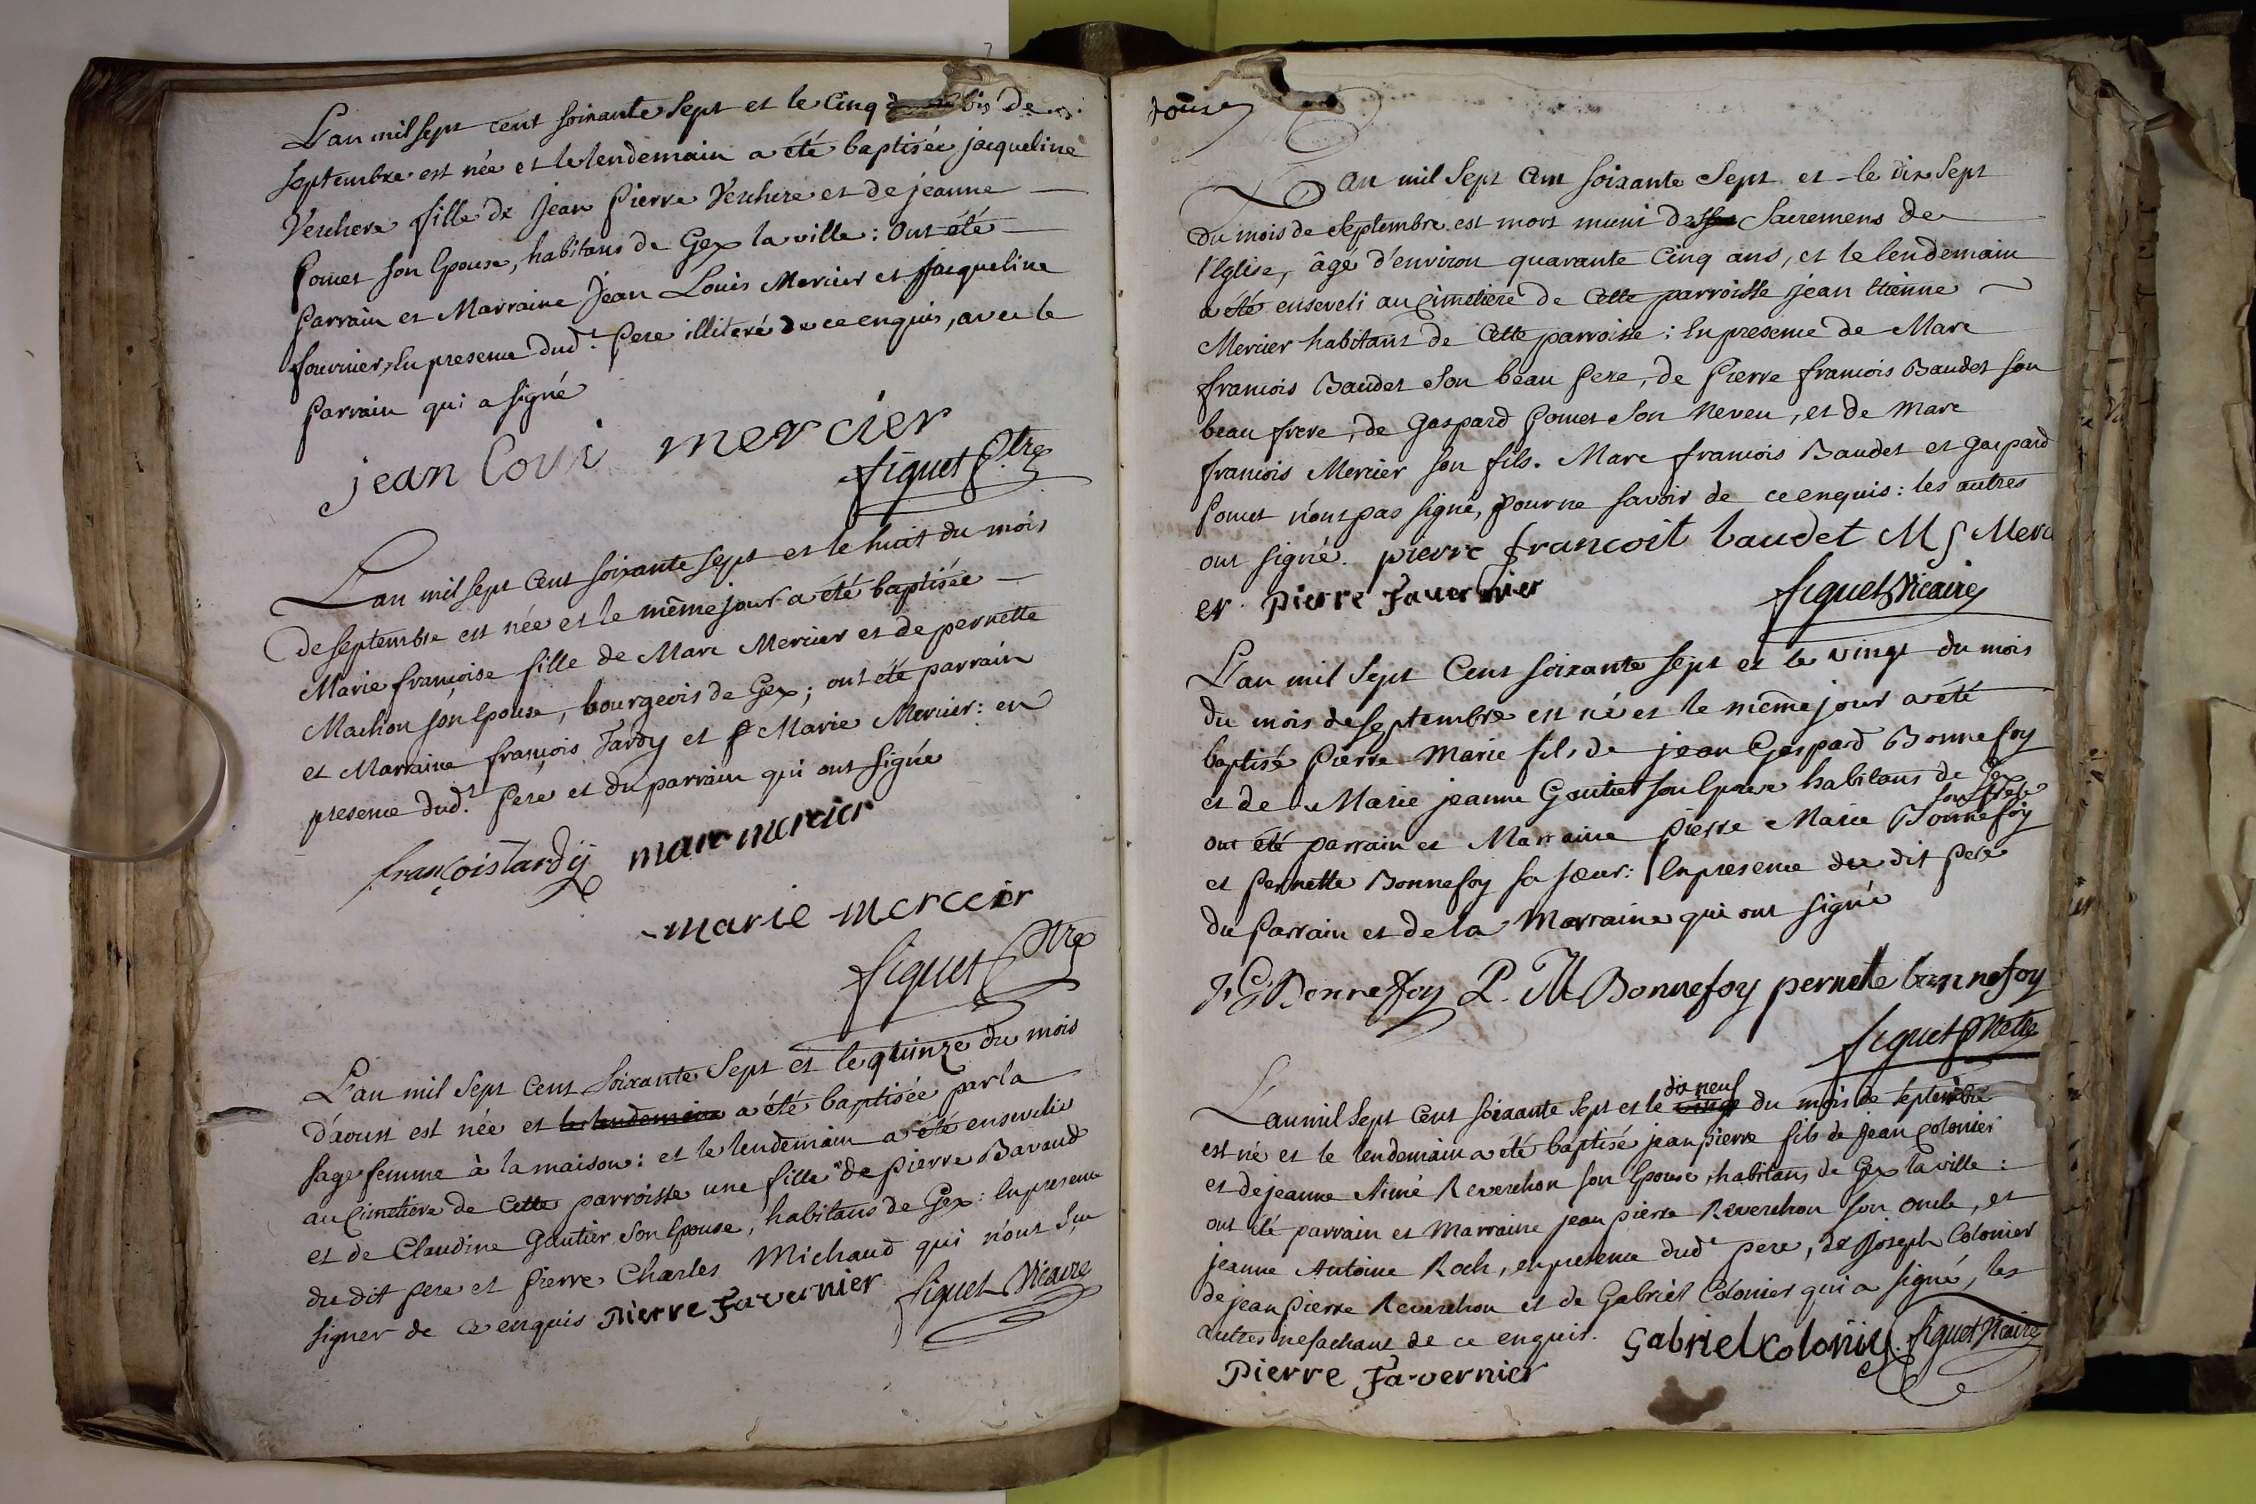 L'an mil sept cent soixante sept et le cinq du mois de
septembre est née et le lendemain a été baptisée jacqueline
Verchere fille de Jean Pierre Verchere et de jeanne
Pomet son Epouse, habitans de Gex la ville : Ont été
Parrain et Marraine Jean Louis Mercier et Jacqueline
fournier, En presence dud.t Pere illiteré de ce enquis, avec le
Parrain qui a signé
jean Loui mercier
figuet P.tre
L'an mil sept Cent soixante sept et le huit du mois
de septembre est née et le même jour a été baptisée
Marie françoise fille de Marc Mercier et de pernette
Machon son Epouse, bourgeois de Gex ; ont été parrain
et Marraine françois Tardy et Marie Mercier : en
presence dud.t Pere et du parrain qui ont signé
françois tardÿ marc mercier
marie mercier
figuet Ptre
L'an mil sept Cent soixante sept et le quinze du mois
d'aoust est née et le lendemain a été baptisée par la
sage femme à la maison : et le lendemain a été ensevelie
au Cimetiére de Cette parroisse une fille de Pierre Bavaud
et de Claudine Gautier son Epouse, habitans de Gex : En presence
du dit pere et Pierre Charles Michaud qui n'ont sçu
signer de ce enquis Pierre Favernier figuet Vicaire
L'An mil sept Cent soixante sept et le dix sept
du mois de septembre est mort muni des Sacremens de
l'Eglise, âgé d'environ quarante Cinq ans, et le lendemain
a été enseveli au Cimetiére de Cette parroisse jean Etienne
Mercier habitant de Cette parroisse : En presence de Marc
françois Baudet son beau Pere, de Pierre françois Baudet son
beau frere, de Gaspard Pomet son Neveu, et de Marc
françois Mercier son fils. Marc françois Baudet et Gaspard
Pomet n'ont pas signé, pour ne savoir de ce enquis : les autres
ont signé. pierre francoit baudet M f Merc
et Pierre Favernier figuet Vicaire
L'an mil sept Cent soixante sept et le vingt du mois
du mois de septembre est né et le même jour a été
baptisé Pierre Marie fils de jean Gaspard Bonnefoy
et de Marie jeanne Goutier son Epouse habitans de Gex
son frere
ont été parrain et Marraine Pierre Marie Bonnefoy
et Pernette Bonnefoy sa sœur : En presence du dit pere
du Parrain et de la Marraine qui ont signé
J G Bonnefoy P. M Bonnefoy pernete bonnefoy
figuet Ptre
dix neuf
L'an mil sept Cent soixante sept et le vingt du mois de septembre
est né et le lendemain a été baptisé jean pierre fils de Jean Colonier
et de jeanne Aimé Reverchon son Epouse, habitans de Gex la ville :
ont été parrain et Marraine jean pierre Reverchon son oncle, et
jeanne Antoine Roch, en presence dud.t pere, de Joseph Colonier
de jean Pierre Reverchon et de Gabriel Colonier qui a signé, les
autres ne sachant de ce enquis. Gabriel Colonier figuet Vicaire
Pierre Favernier